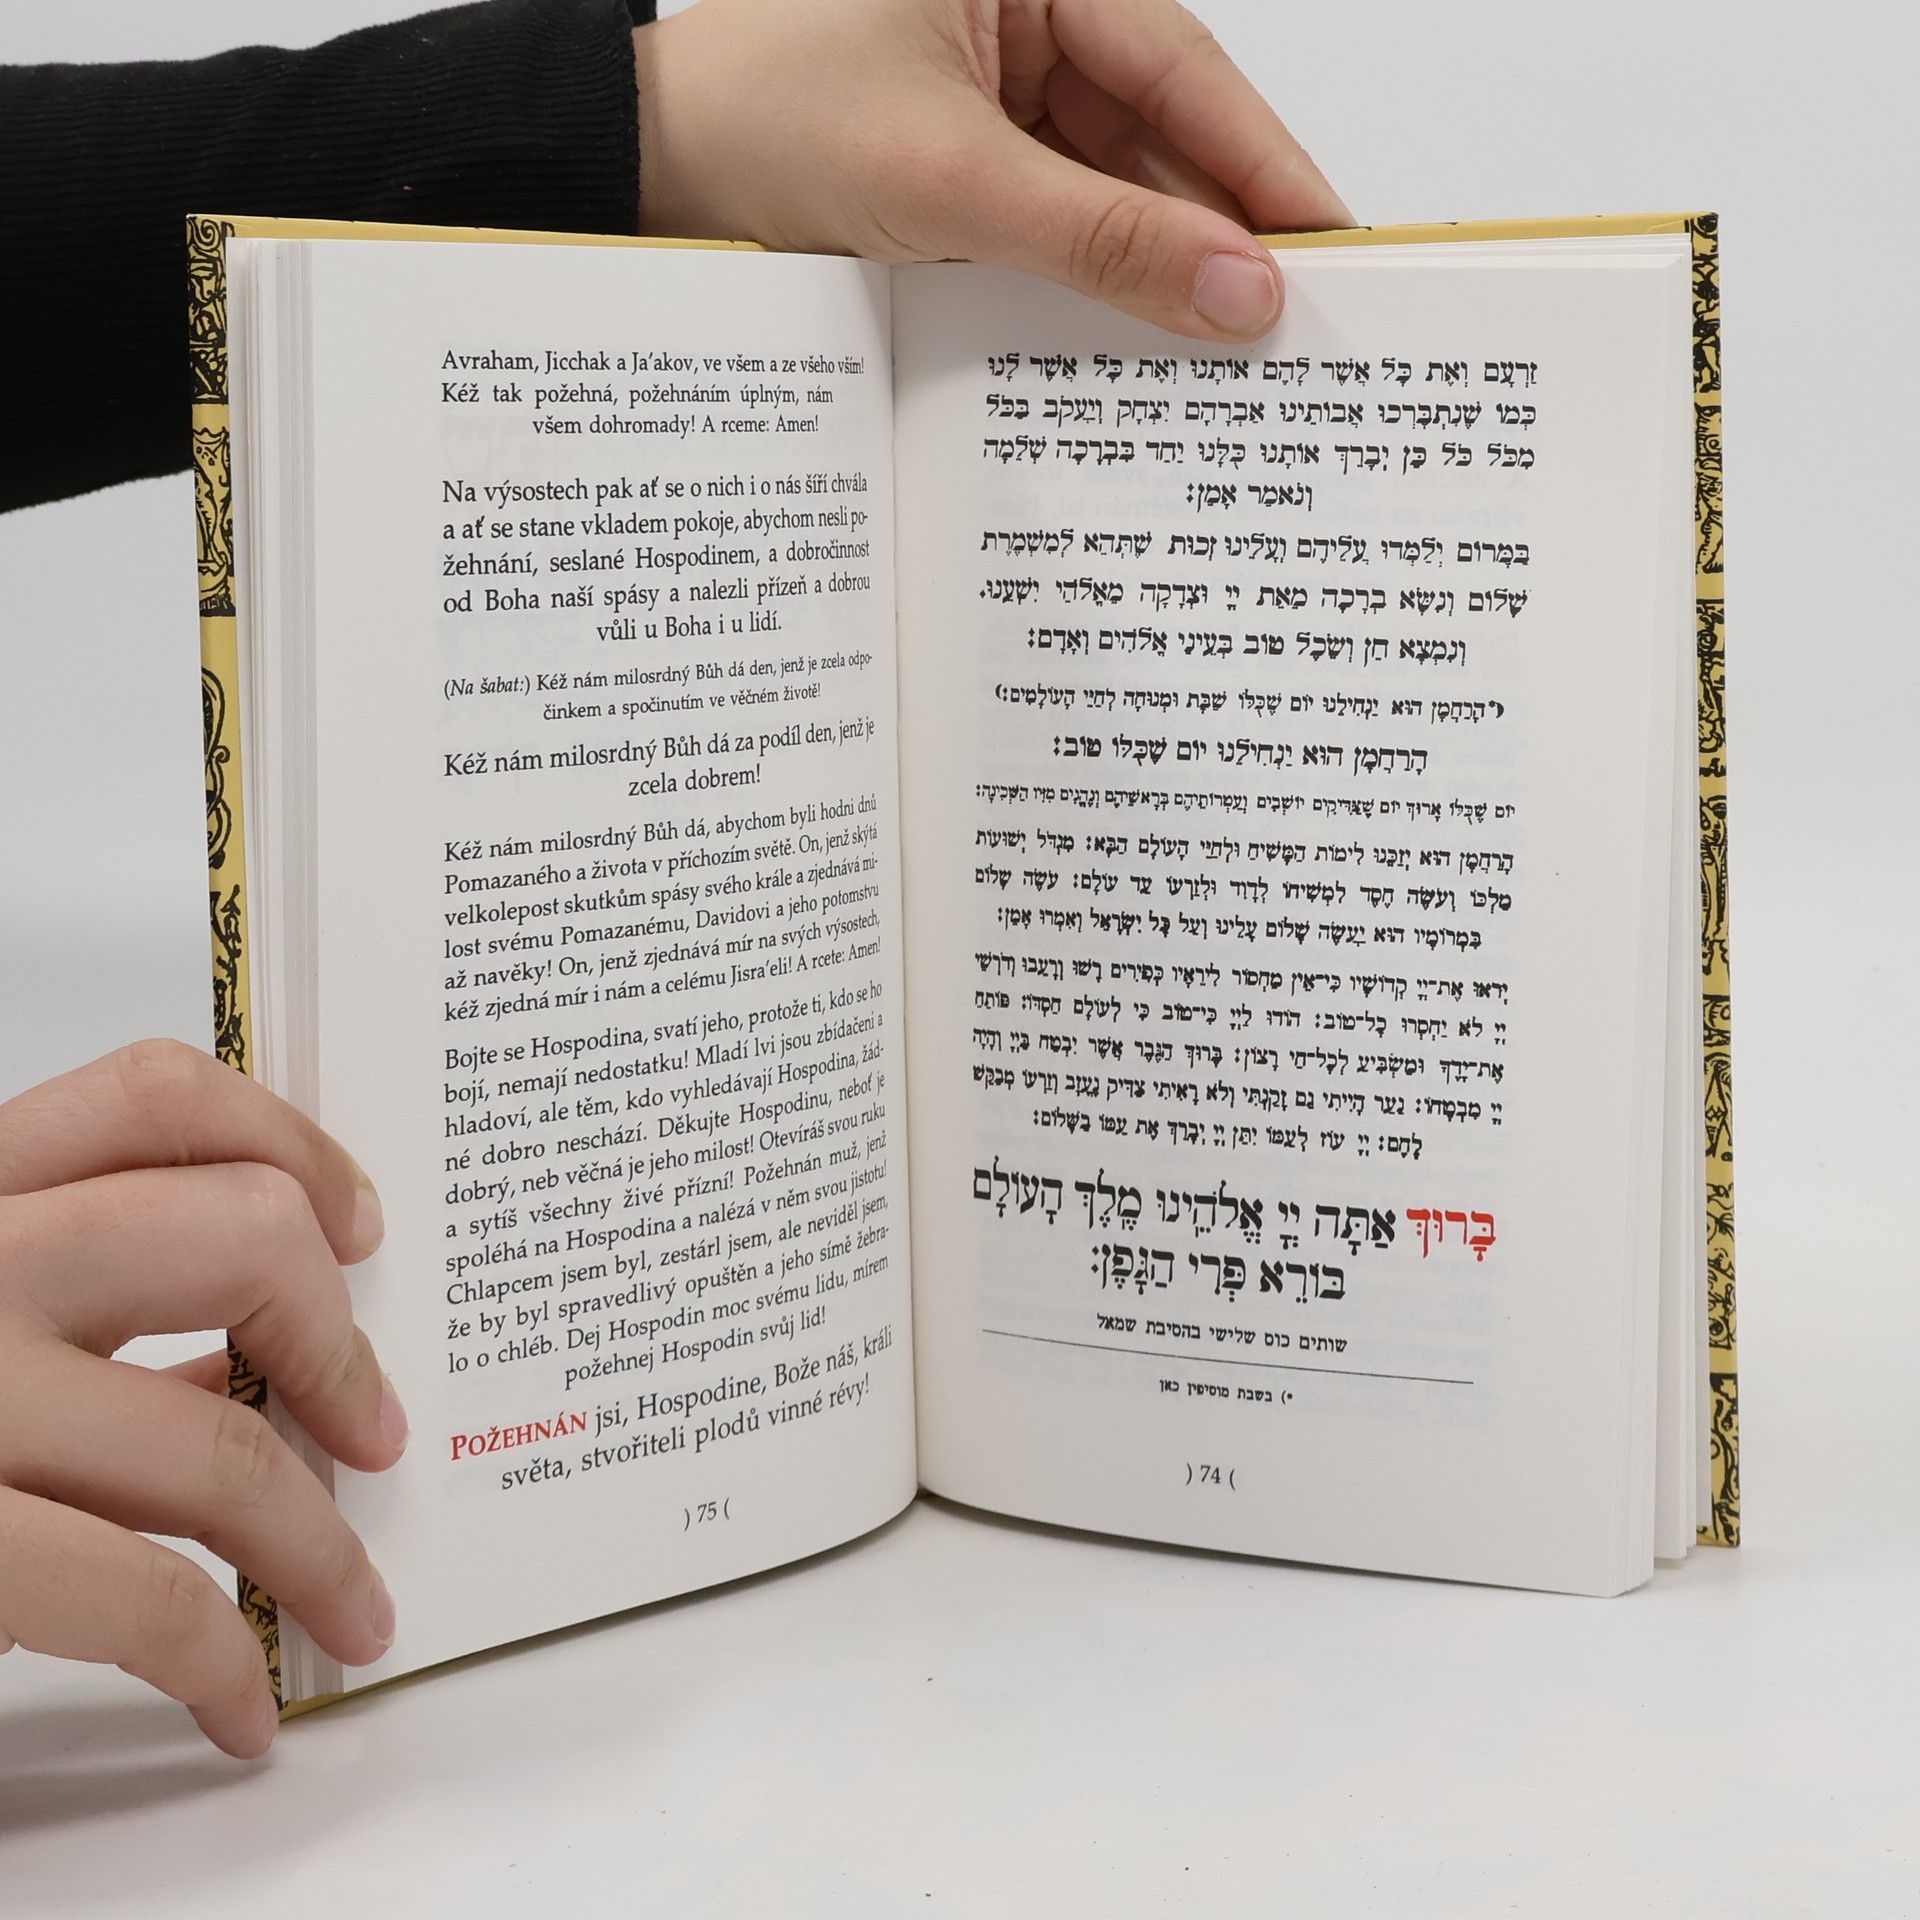 זַרְעָם וְאֶת כָּל אֲשֶׁר לָהֶם אוֹתָנוּ וְאֶת כָּל אֲשֶׁר לָנוּ
כְּמוֹ שֶׁנִּתְבָּרְכוּ אֲבוֹתֵינוּ אַבְרָהָם יִצְחָק וְיַעֲקֹב בַּכֹּל
מִכֹּל כֹּל כֵּן יְבָרֵךְ אוֹתָנוּ כֻּלָּנוּ יַחַד בִּבְרָכָה שְׁלֵמָה
וְנֹאמַר אָמֵן:
בַּמָּרוֹם יְלַמְּדוּ עֲלֵיהֶם וְעָלֵינוּ זְכוּת שֶׁתְּהֵא לְמִשְׁמֶרֶת
שָׁלוֹם וְנִשָּׂא בְרָכָה מֵאֵת יְיָ וּצְדָקָה מֵאֱלֹהֵי יִשְׁעֵנוּ.
וְנִמְצָא חֵן וְשֵׂכֶל טוֹב בְּעֵינֵי אֱלֹהִים וְאָדָם:
(*הָרַחֲמָן הוּא יַנְחִילֵנוּ יוֹם שֶׁכֻּלּוֹ שַׁבָּת וּמְנוּחָה לְחַיֵּי הָעוֹלָמִים:)
הָרַחֲמָן הוּא יַנְחִילֵנוּ יוֹם שֶׁכֻּלּוֹ טוֹב:
יוֹם שֶׁכֻּלּוֹ אָרוּךְ יוֹם שֶׁצַּדִּיקִים יוֹשְׁבִים וְעַטְרוֹתֵיהֶם בְּרָאשֵׁיהֶם וְנֶהֱנִים מִזִּיו הַשְּׁכִינָה:
הָרַחֲמָן הוּא יְזַכֵּנוּ לִימוֹת הַמָּשִׁיחַ וּלְחַיֵּי הָעוֹלָם הַבָּא: מִגְדֹּל יְשׁוּעוֹת
מַלְכּוֹ וְעֹשֶׂה חֶסֶד לִמְשִׁיחוֹ לְדָוִד וּלְזַרְעוֹ עַד עוֹלָם: עֹשֶׂה שָׁלוֹם
בִּמְרוֹמָיו הוּא יַעֲשֶׂה שָׁלוֹם עָלֵינוּ וְעַל כָּל יִשְׂרָאֵל וְאִמְרוּ אָמֵן:
יְראוּ אֶת־יְיָ קְדוֹשָׁיו כִּי־אֵין מַחְסוֹר לִירֵאָיו כְּפִירִים רָשׁוּ וְרָעֵבוּ וְדוֹרְשֵׁי
יְיָ לֹא יַחְסְרוּ כָל־טוֹב: הוֹדוּ לַיְיָ כִּי־טוֹב כִּי לְעוֹלָם חַסְדּוֹ: פּוֹתֵחַ
אֶת־יָדֶךָ וּמַשְׂבִּיעַ לְכָל־חַי רָצוֹן: בָּרוּךְ הַגֶּבֶר אֲשֶׁר יִבְטַח בַּיְיָ וְהָיָה
יְיָ מִבְטַחוֹ: נַעַר הָיִיתִי גַּם זָקַנְתִּי וְלֹא רָאִיתִי צַדִּיק נֶעֱזָב וְזַרְעוֹ מְבַקֵּשׁ
לָחֶם: יְיָ עֹז לְעַמּוֹ יִתֵּן יְיָ יְבָרֵךְ אֶת עַמּוֹ בַשָּׁלוֹם:
בָּרוּךְ אַתָּה יְיָ אֱלֹהֵינוּ מֶלֶךְ הָעוֹלָם
בּוֹרֵא פְּרִי הַגָּפֶן:
שותים כוס שלישי בהסיבת שמאל
*) בשבת מוסיפין כאן
) 74 (
Avraham, Jicchak a Ja’akov, ve všem a ze všeho vším!
Kéž tak požehná, požehnáním úplným, nám
všem dohromady! A rceme: Amen!
Na výsostech pak ať se o nich i o nás šíří chvála
a ať se stane vkladem pokoje, abychom nesli po-
žehnání, seslané Hospodinem, a dobročinnost
od Boha naší spásy a nalezli přízeň a dobrou
vůli u Boha i u lidí.
(Na šabat:) Kéž nám milosrdný Bůh dá den, jenž je zcela odpo-
činkem a spočinutím ve věčném životě!
Kéž nám milosrdný Bůh dá za podíl den, jenž je
zcela dobrem!
Kéž nám milosrdný Bůh dá, abychom byli hodni dnů
Pomazaného a života v příchozím světě. On, jenž skýtá
velkolepost skutkům spásy svého krále a zjednává mi-
lost svému Pomazanému, Davidovi a jeho potomstvu
až navěky! On, jenž zjednává mír na svých výsostech,
kéž zjedná mír i nám a celému Jisra’eli! A rcete: Amen!
Bojte se Hospodina, svatí jeho, protože ti, kdo se ho
bojí, nemají nedostatku! Mladí lvi jsou zbídačeni a
hladoví, ale těm, kdo vyhledávají Hospodina, žád-
né dobro neschází. Děkujte Hospodinu, neboť je
dobrý, neb věčná je jeho milost! Otevíráš svou ruku
a sytíš všechny živé přízní! Požehnán muž, jenž
spoléhá na Hospodina a nalézá v něm svou jistotu!
Chlapcem jsem byl, zestárl jsem, ale neviděl jsem,
že by byl spravedlivý opuštěn a jeho símě žebra-
lo o chléb. Dej Hospodin moc svému lidu, mírem
požehnej Hospodin svůj lid!
POŽEHNÁN jsi, Hospodine, Bože náš, králi
světa, stvořiteli plodů vinné révy!
) 75 (